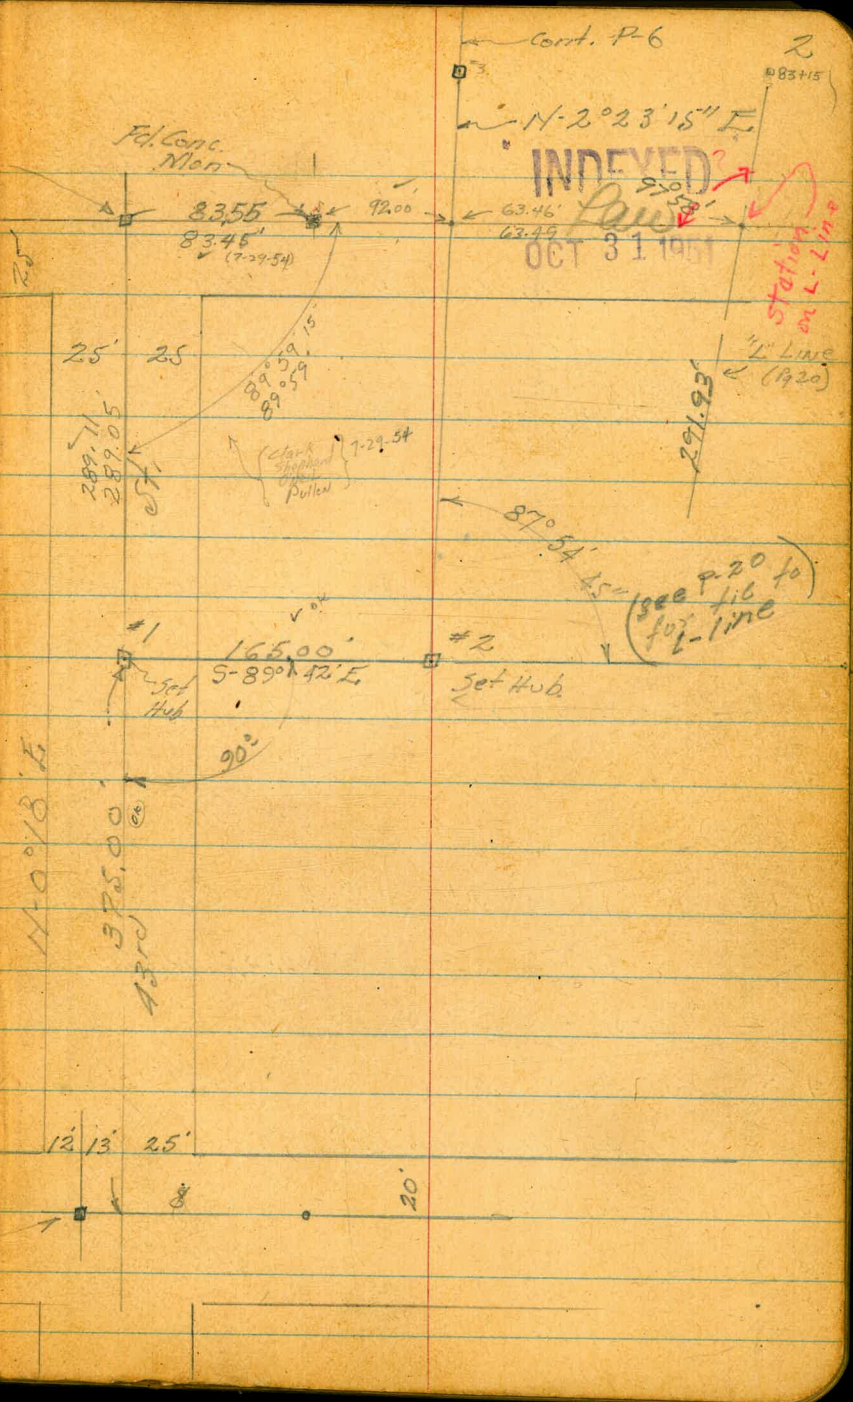 Cont. P-6
2
#3
83+15
N-2°23'15" E.
Fd. Conc.
Mon
INDEXED
Law
OCT 31 1951
83.55
83.45'
(7-29-54)
92.00'
63.46'
63.49
97°58'
?
Station
on L-Line
25'
25'
25
89°59'15"
89°59'
"L" LINE
(Pg20)
291.93'
289.11
289.05'
St.
Clark
Shepherd
Pullen
7-29-54
87°54'45"
(see p-20
for tie to
L-line)
#1
165.00'
S-89°42'E.
ok
#2
Set
Hub
Set Hub.
90°
ok
N-0°18'E
375.00'
43rd
12'
13'
25'
20'